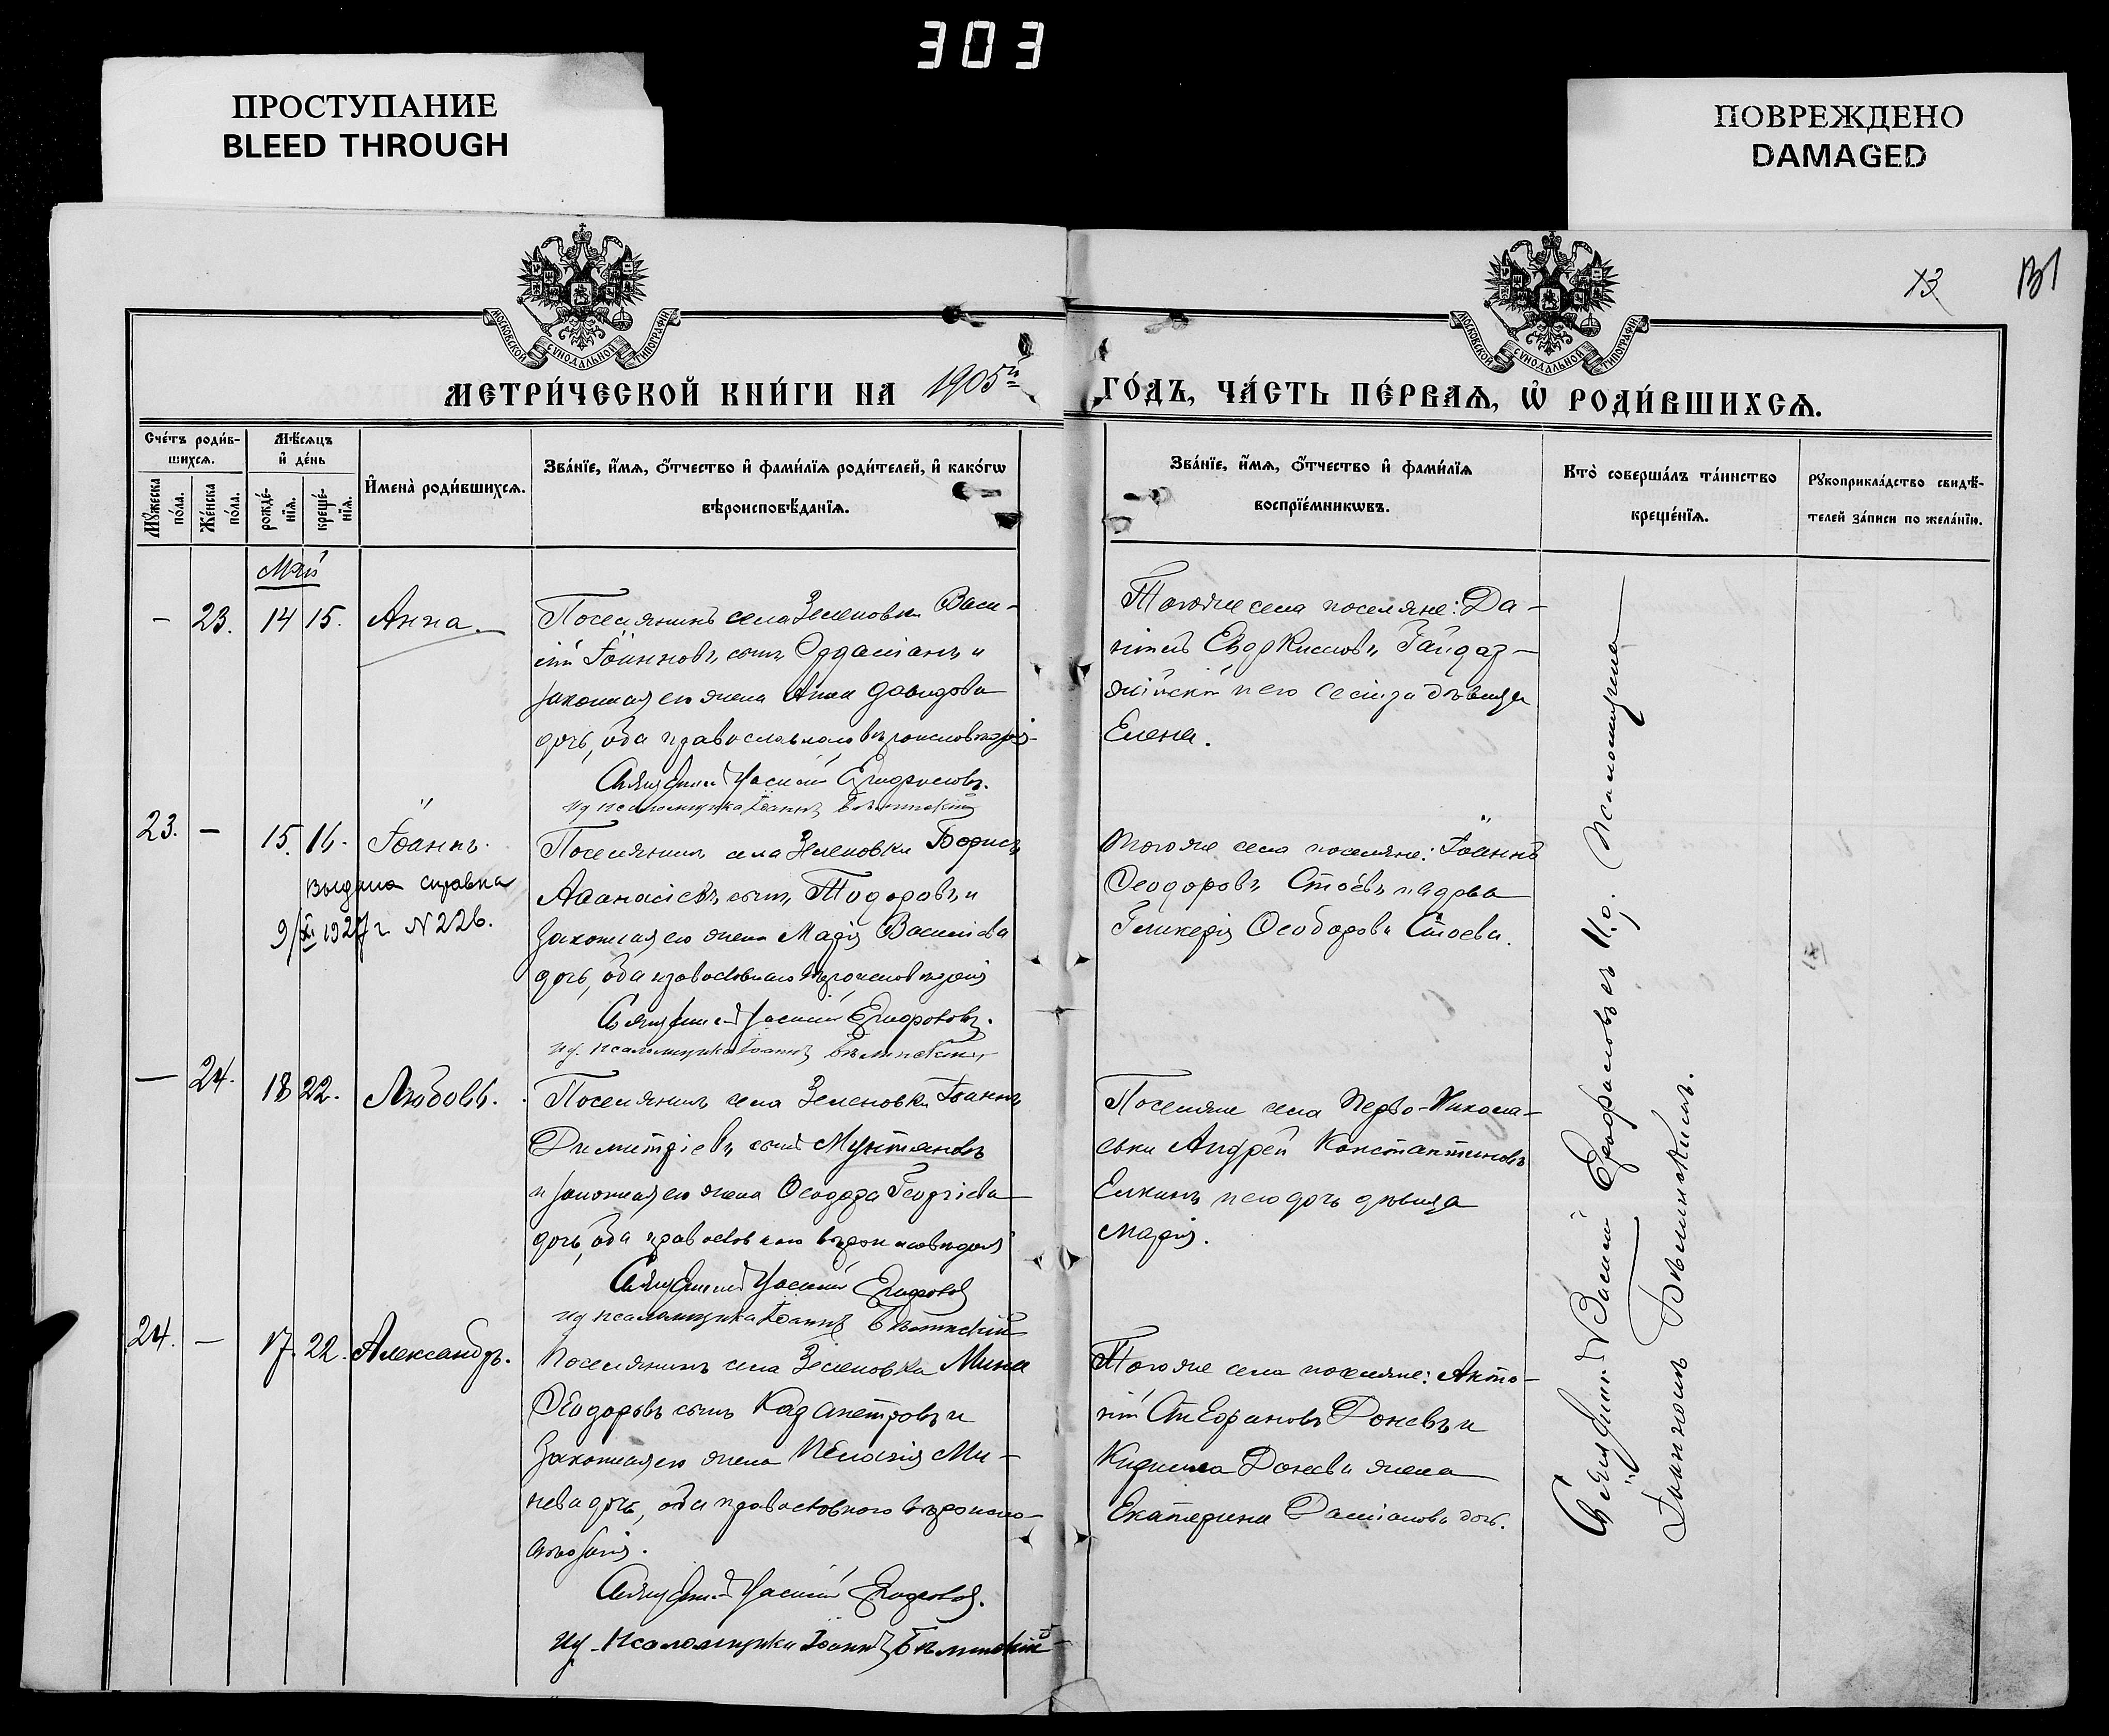 303
ПРОСТУПАНИЕ
BLEED THROUGH
ПОВРЕЖДЕНО
DAMAGED
МОСКОВСКОЙ СУНОДАЛЬНОЙ ТИПОГРАФІИ
МОСКОВСКОЙ СУНОДАЛЬНОЙ ТИПОГРАФІИ
13
МЕТРИ́ЧЕСКОЙ КНИ́ГИ НА 1905й
ГО́ДЪ, ЧА́СТЬ ПЕ́РВАѦ, Ѡ҆ РОДИ́ВШИХСѦ.
Сче́тъ роди́в-
шихсѧ.
Мꙋ́жеска по́ла.
Же́нска по́ла.
Мѣ́сѧцъ
и҆ де́нь
рожде́-
нїѧ.
креще́-
нїѧ.
И҆мена̀ роди́вшихсѧ.
Зва́нїе, и҆́мѧ, ѻ҆́тчество и҆ фами́лїѧ роди́телей, и҆ како́гѡ
вѣроисповѣ́данїѧ.
Зва́нїе, и҆́мѧ, ѻ҆́тчество и҆ фами́лїѧ
воспрїе́мникѡвъ.
Кто̀ соверша́лъ та́инство
креще́нїѧ.
Рꙋкоприкла́дство свидѣ́-
телей за́писи по жела́нїю.
Май
— 23. 14 15. Анна.
Поселянинъ села Зеленовки Васи-
лій Іоанновъ сынъ Ардаліанъ и
законная его жена Анна Давидова
дочь, оба православнаго вѣроисповѣданія
Священникъ Василій
Ид псаломщика Іоаннъ Бѣлинскій
Тогоже села поселяне: Да-
ніилъ Евдокимовъ Гайдар-
жійскій и его сестра дѣвица
Елена.
23. — 15. 16. Іоаннъ.
Выдана справка
9/XI 1927 г N 226.
Поселянинъ села Зеленовки Борисъ
Аѳанасіевъ сынъ Тодоровъ и
законная его жена Марія Василіева
дочь, оба православнаго вѣроисповѣданія
Священникъ Василій
Ид. псаломщика Іоаннъ Бѣлинскій
Тогоже села поселяне: Іоаннъ
Ѳеодоровъ Стоевъ и вдова
Гликерія Ѳеодорова Стоева.
— 24. 18 22. Любовь.
Поселянинъ села Зеленовки Іоаннъ
Димитріевъ сынъ Мунтяновъ
и законная его жена Ѳеодора Георгіева
дочь, оба православнаго вѣроисповѣданія
Священникъ Василій
Ид псаломщика Іоаннъ Бѣлинскій
Поселяне села Перво-Никола-
евки Андрей Константиновъ
Елкинъ и его дочь дѣвица
Марія.
24. — 17. 22. Александръ.
Поселянинъ села Зеленовки Мина
Ѳеодоровъ сынъ Кадапетровъ и
законная его жена Пелагія Ми-
нева дочь, оба православнаго вѣроиспо-
вѣданія.
Священникъ Василій
Ид. Псаломщика Іоаннъ Бѣлинскій
Тогоже села поселяне: Анто-
ній Стефановъ Доневъ и
Кирилла Донева жена
Екатерина Даміанова дочь.
Священникъ Василій съ И. о. Псаломщика
Іоанномъ Бѣлинскимъ.